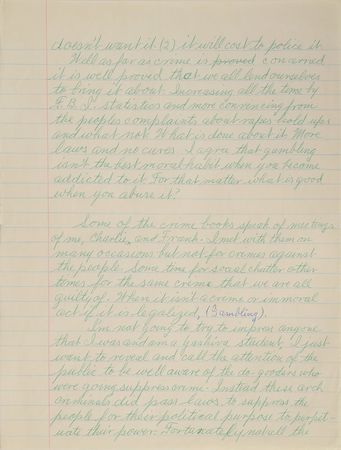 doesn't want it (2) it will cost to police it
Well as far as crime is proved concerned
it is well proved that we all lend ourselves
to bring it about. Increasing all the time by
F.B.I. statistics and more convincing from
the peoples complaints about rapes hold ups
and what not. What is done about it More
laws and no cures. I agree that gambling
isn't the best moral habit when you become
addicted to it. For that matter what is good
when you abuse it?
Some of the crime books speak of meetings
of me, Charlie, and Frank. I met with them on
many occasions but not for crimes against
the people. Some time for social chatter other
times for the same crime that we are all
guilty of. When it isn't a crime or immoral
act if it is legalized, (Gambling).
I'm not going to try to impress anyone
that I was and am a yeshiva student. I just
want to reveal and call the attention of the
public to be well aware of the do-gooders who
were going suppress crime. Instead these arch
criminals did pass laws to suppress the
people for their political purpose to perpet-
uate their power. Fortunately not all the